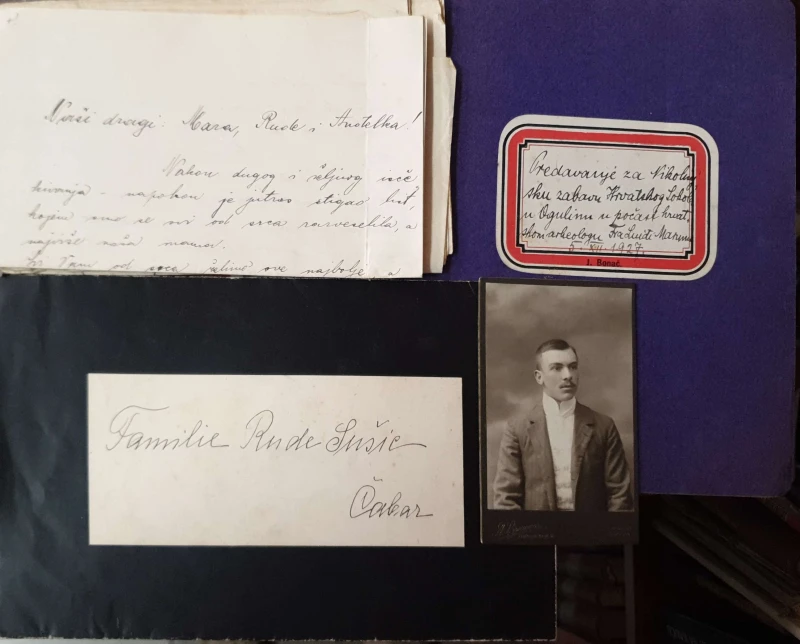 Naši dragi: Mara, Rude i Anđelka!
Nakon dugog i željnog išče
kivanja - napokon je jutros stigao list,
kojim smo se svi od srca razveselili, a
najviše naša mama.
Svi Vam od srca želimo sve najbolje, a
Predavanje za Nikolinj
sku zabavu Hrvatskog Sokola
u Ogulinu u počast hrvat.
skom arheologu Fra Luiđi Marunu
5. XII. 1927.
I. Bonač.
Familie Rude Sušic
Čabar